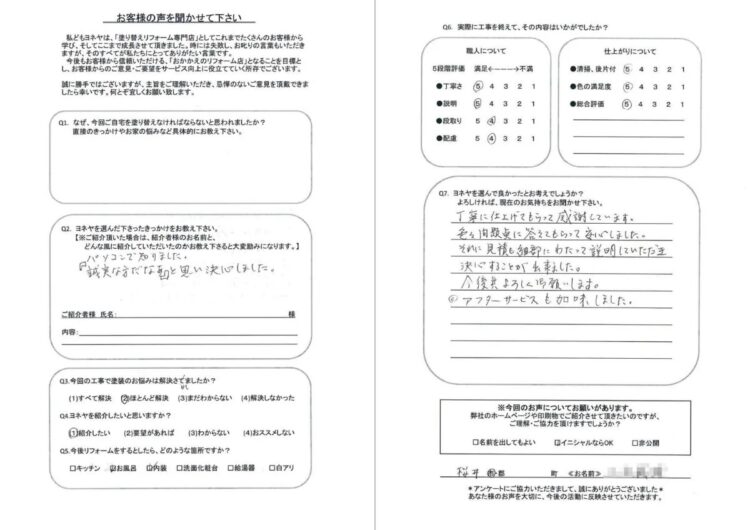 お客様の声を聞かせて下さい
私どもヨネヤは、「塗り替えリフォーム専門店」としてこれまでたくさんのお客様から
学び、そしてここまで成長させて頂きました。時には失敗し、お叱りの言葉もいただき
ますが、そのすべてが私たちにとってありがたい言葉です。
今後もお客様から信頼いただける、「おかかえのリフォーム店」となることを目標と
し、お客様からのご意見・ご要望をサービス向上に役立てていく所存でございます。
誠に勝手ではございますが、主旨をご理解いただき、忌憚のないご意見を頂戴できま
したら幸いです。何とぞ宜しくお願い致します。
Q1. なぜ、今回ご自宅を塗り替えなければならないと思われましたか?
直接のきっかけやお家の悩みなど具体的にお教え下さい。
Q2. ヨネヤを選んだ下さったきっかけをお教え下さい。
【※ご紹介頂いた場合は、紹介者様のお名前と、
どんな風に紹介していただいたのかお教え下さると大変励みになります。】
パソコンで知りました。
「誠実な方だな」と思い決心しました。
ご紹介者様 氏名: 様
内容:
Q3.今回の工事で塗装のお悩みは解決さてましたか?
(1)すべて解決 (2)ほとんど解決 (3)まだわからない (4)解決しなかった
Q4.ヨネヤを紹介したいと思いますか?
(1)紹介したい (2)要望があれば (3)わからない (4)おススメしない
Q5.今後リフォームをするとしたら、どのような箇所ですか?
□キッチン ☑お風呂 ☑内装 □洗面化粧台 □給湯器 □白アリ
Q6. 実際に工事を終えて、その内容はいかがでしたか?
職人について
5段階評価 満足←――→不満
●丁寧さ 5 4 3 2 1
●説明 5 4 3 2 1
●段取り 5 4 3 2 1
●配慮 5 4 3 2 1
仕上がりについて
●清掃、後片付 5 4 3 2 1
●色の満足度 5 4 3 2 1
●総合評価 5 4 3 2 1
Q7. ヨネヤを選んで良かったとお考えでしょうか?
よろしければ、現在のお気持ちをお聞かせ下さい。
丁寧に仕上げてもらって感謝しています。
色々問題点に答えてもらって安心しました。
それに見積も細部にわたって説明していただき
決心することが出来ました。
今後共よろしくお願いします。
◎アフターサービスも加味しました。
※今回のお声についてお願いがあります。
弊社のホームページや印刷物でご紹介させて頂きたいのですが、
ご理解・ご協力を頂けますでしょうか?
□名前を出してもよい ☑イニシャルならOK □非公開
桜井 郡 町 《お名前》
*アンケートにご協力いただきまして、誠にありがとうございました*
あなた様のお声を大切に、今後の活動に反映させていただきます。